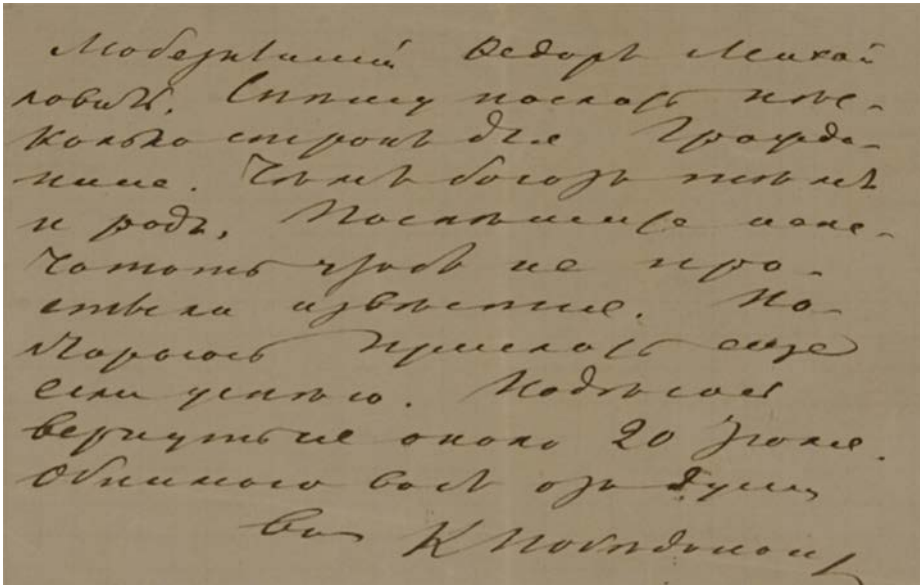 Любезнѣйшій Ѳедоръ Михай
ловичъ. Спѣшу послать нѣс-
колько строкъ для Гражда-
нина. Чѣмъ богатъ тѣмъ
и радъ. Поспѣшите напе-
чатать чтобъ не про-
стыли извѣстія. По-
стараюсь прислать еще
если успѣю. Надѣюсь
вернуться около 20 Іюля.
Обнимаю васъ отъ души
К Побѣдоносц